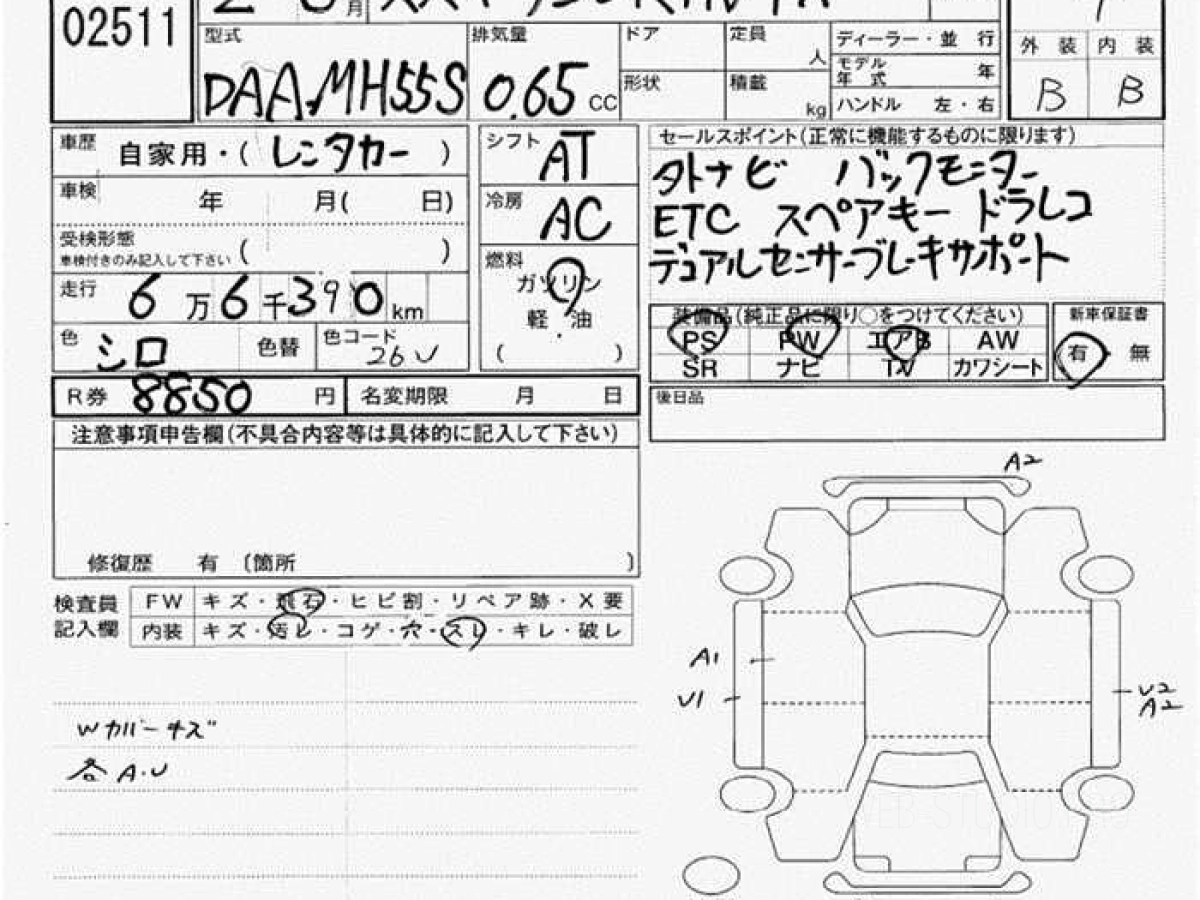 02511
月
型式
DAA MH55S
排気量
0.65 CC
ドア
形状
定員 人
積載 kg
ディーラー・並 行
モデル年式 年
ハンドル 左・右
外 装 内 装
B B
車歴 自家用・( レンタカー )
車検 年 月( 日)
受検形態
車検付きのみ記入して下さい ( )
走行 6万6千390km
色 シロ 色替 色コード 26U
シフト AT
冷房 AC
燃料
ガソリン
軽・油
( )
R券 8850 円 名変期限 月 日
セールスポイント(正常に機能するものに限ります)
メトナビ バックモニター
ETC スペアキー ドラレコ
デュアルセンサーブレーキサポート
装備品(純正品に限り○をつけてください)
PS PW エアB AW
SR ナビ TV カワシート
新車保証書
有 無
後日品
注意事項申告欄(不具合内容等は具体的に記入して下さい)
修復歴 有 〔箇所 〕
検査員
記入欄
FW キズ・飛石・ヒビ割・リペア跡・X要
内装 キズ・汚レ・コゲ・穴・スレ・キレ・破レ
Wカバーキズ
各A.U
A2
A1
U1
U2
A2